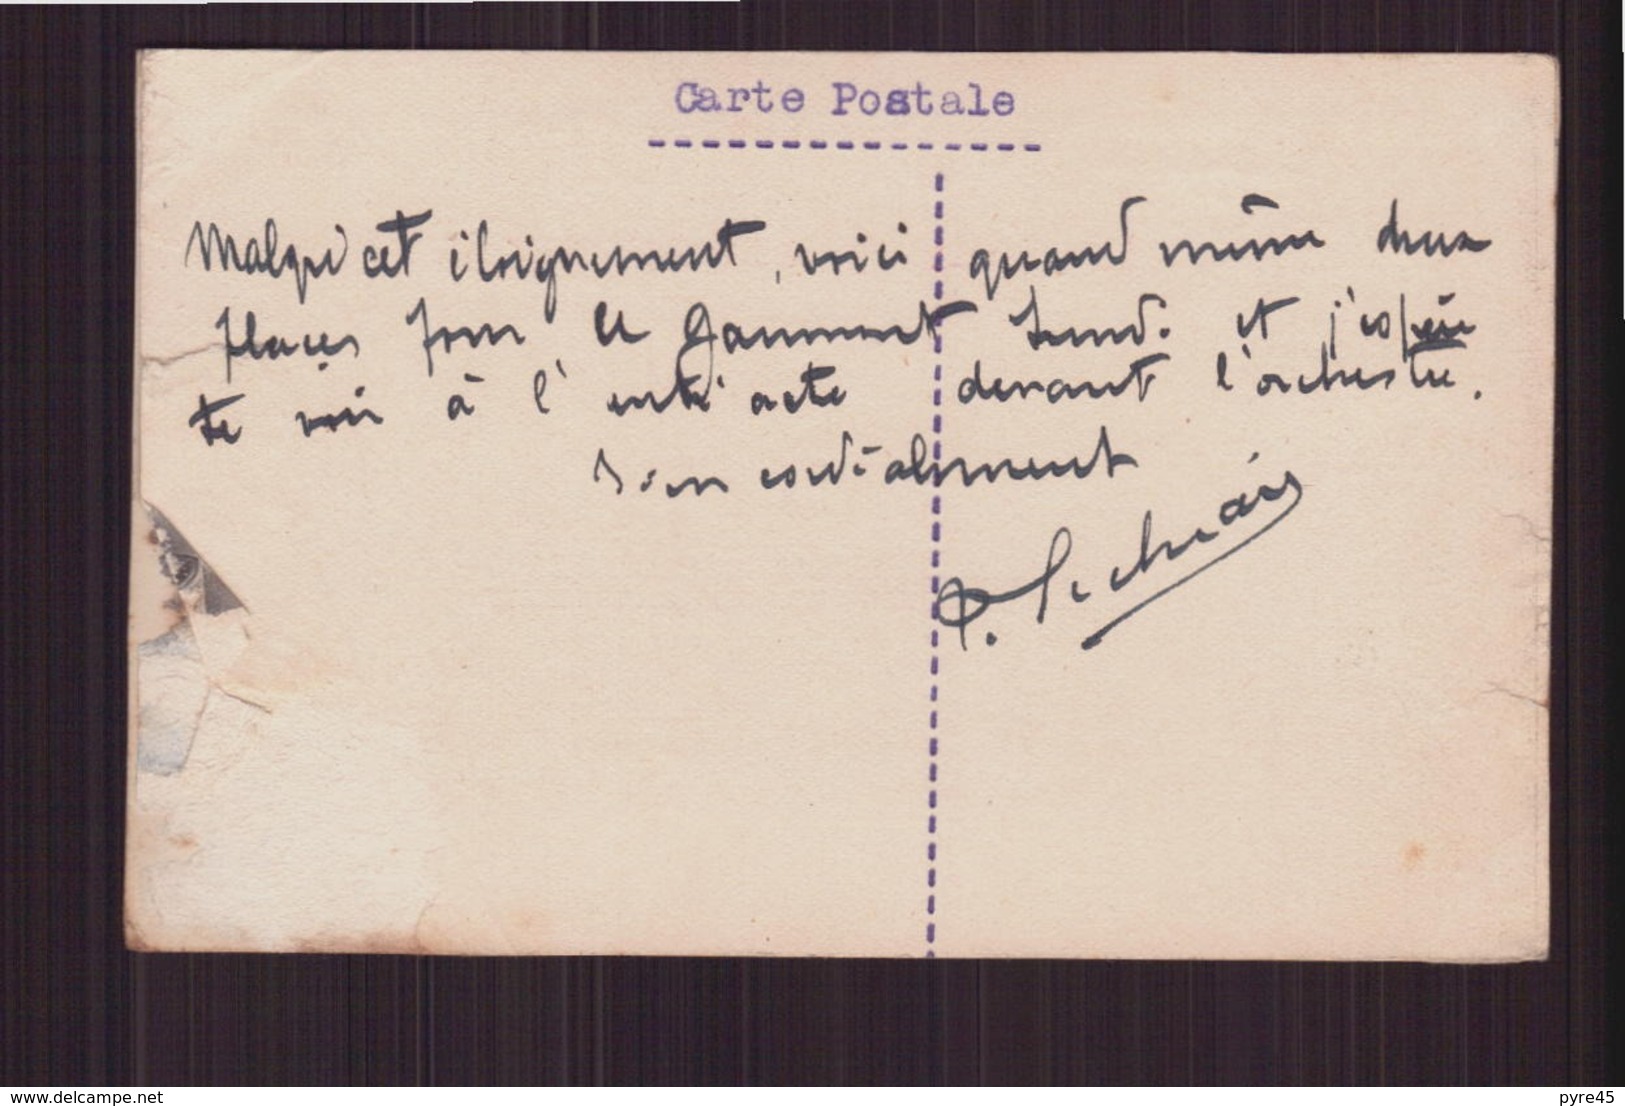 Carte Postale
Malgré cet éloignement, voici quand même deux
places pour le Gaumont Lund. et j'espère
te voir à l'entr'acte devant l'orchestre.
Bien cordialement
www.delcampe.net
pyre45